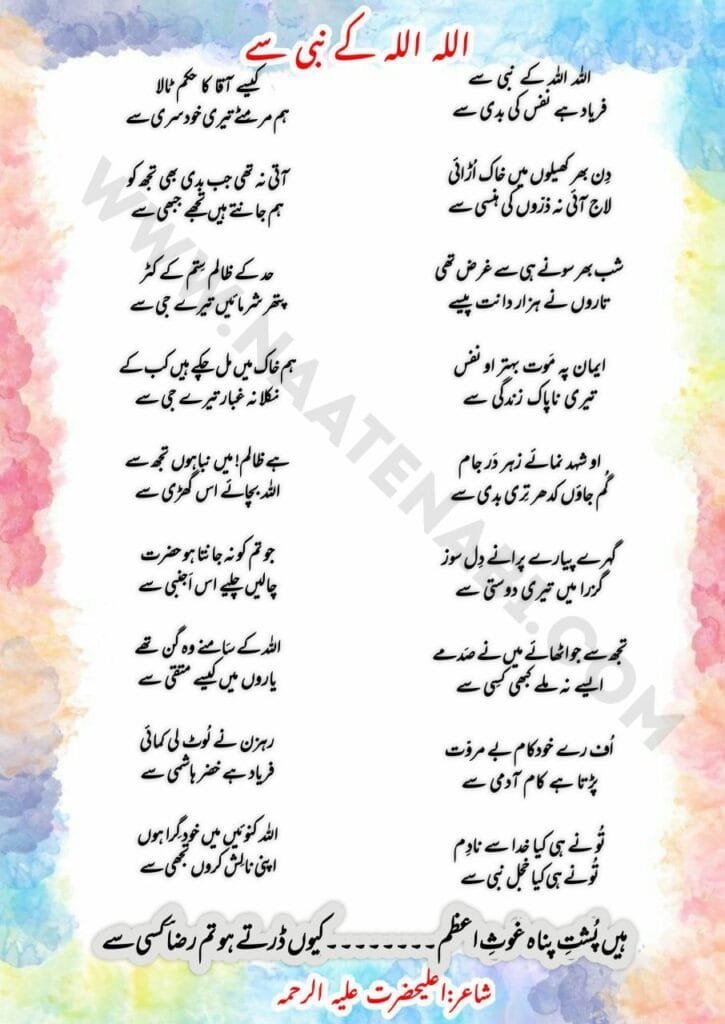 اللہ اللہ کے نبی سے
اللہ اللہ کے نبی سے
فریاد ہے نفس کی بدی سے
دِن بھر کھیلوں میں خاک اُڑائی
لاج آئی نہ ذرّوں کی ہنسی سے
شب بھر سونے ہی سے غرض تھی
تاروں نے ہزار دانت پیسے
ایمان پہ مَوت بہتر او نفس
تیری ناپاک زندگی سے
او شہد نمائے زہر دَر جام
گُم جاؤں کدھر تِری بدی سے
گہرے پیارے پرانے دِل سوز
گزرا میں تیری دوستی سے
تجھ سے جو اٹھائے میں نے صَدمے
ایسے نہ ملے کبھی کِسی سے
اُف رے خود کام بے مروّت
پڑتا ہے کام آدمی سے
تُو نے ہی کیا خدا سے نادِم
تُو نے ہی کیا خجل نبی سے
کیسے آقا کا حکم ٹالا
ہم مر مٹے تیری خود سری سے
آتی نہ تھی جب بدی بھی تجھ کو
ہم جانتے ہیں تجھے جبھی سے
حد کے ظالم سِتم کے کٹّر
پتھر شرمائیں تیرے جی سے
ہم خاک میں مل چکے ہیں کب کے
نکلا نہ غبار تیرے جی سے
ہے ظالم! میں نباہوں تجھ سے
اللہ بچائے اس گھڑی سے
جو تم کو نہ جانتا ہو حضرت
چالیں چلیے اس اَجنبی سے
اللہ کے سَامنے وہ گن تھے
یاروں میں کیسے متقی سے
رہزن نے لُوٹ لی کمائی
فریاد ہے خضر ہاشمی سے
اللہ کنوئیں میں خود گِرا ہوں
اپنی نالِش کروں تجھی سے
ہیں پُشتِ پناہ غوثِ اعظم۔۔۔۔۔۔۔۔کیوں ڈرتے ہو تم رضاؔ کسی سے
شاعر:اعلیحضرت علیہ الرحمہ
WWW.NAATENABI.COM